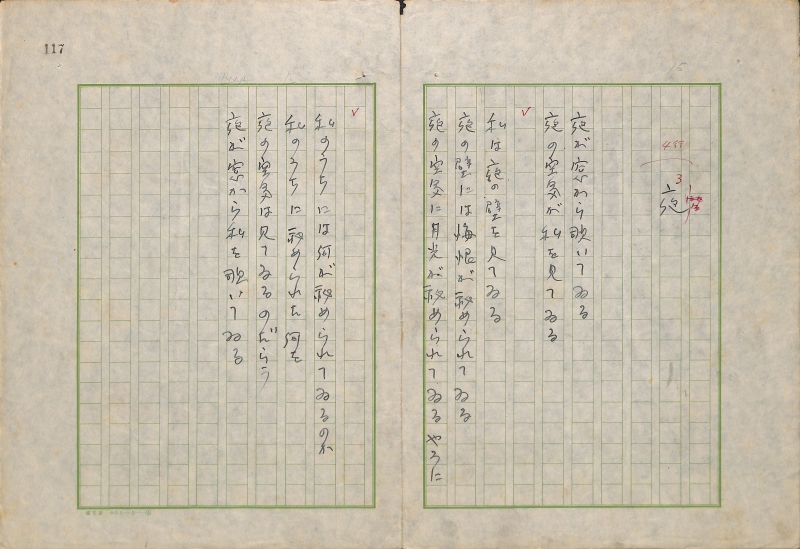 117
夜
3
夜が窓から覗いてゐる
夜の空気が私を見てゐる
私は夜の壁を見てゐる
夜の壁には悔恨が秘められてゐる
夜の空気に月光が秘められてゐるやうに
私のうちには何が秘められてゐるのか
私のうちに秘められた何を
夜の空気は見てゐるのだらう
夜が窓から私を覗いてゐる